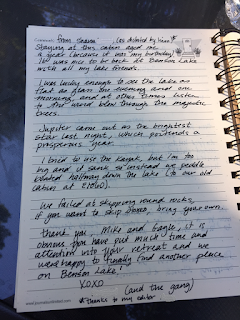 Comments from Shauna* (as dictated by him)*
Staying at this cabin aged me
a year (because it was my birthday).
It was nice to be back at Benson Lake
with all my lake friends.
I was lucky enough to see the lake as
flat as glass one evening and one
morning, and at other times listen
to the wind blow through the majestic
trees.
Jupiter came out as the brightest
star last night, which portends a
prosperous year.
I tried to use the kayak, but I'm too
big and it sank, so instead we peddle
boated halfway down the lake (to our old
cabin at E1060).
We failed at skipping round rocks,
if you want to skip stones, bring your own.
Thank you, Mike and Gayle, it is
obvious you have put much time and
attention into your retreat and we
were happy to finally find another place
on Benson Lake!
XOXO
(and the gang)
* thanks to my